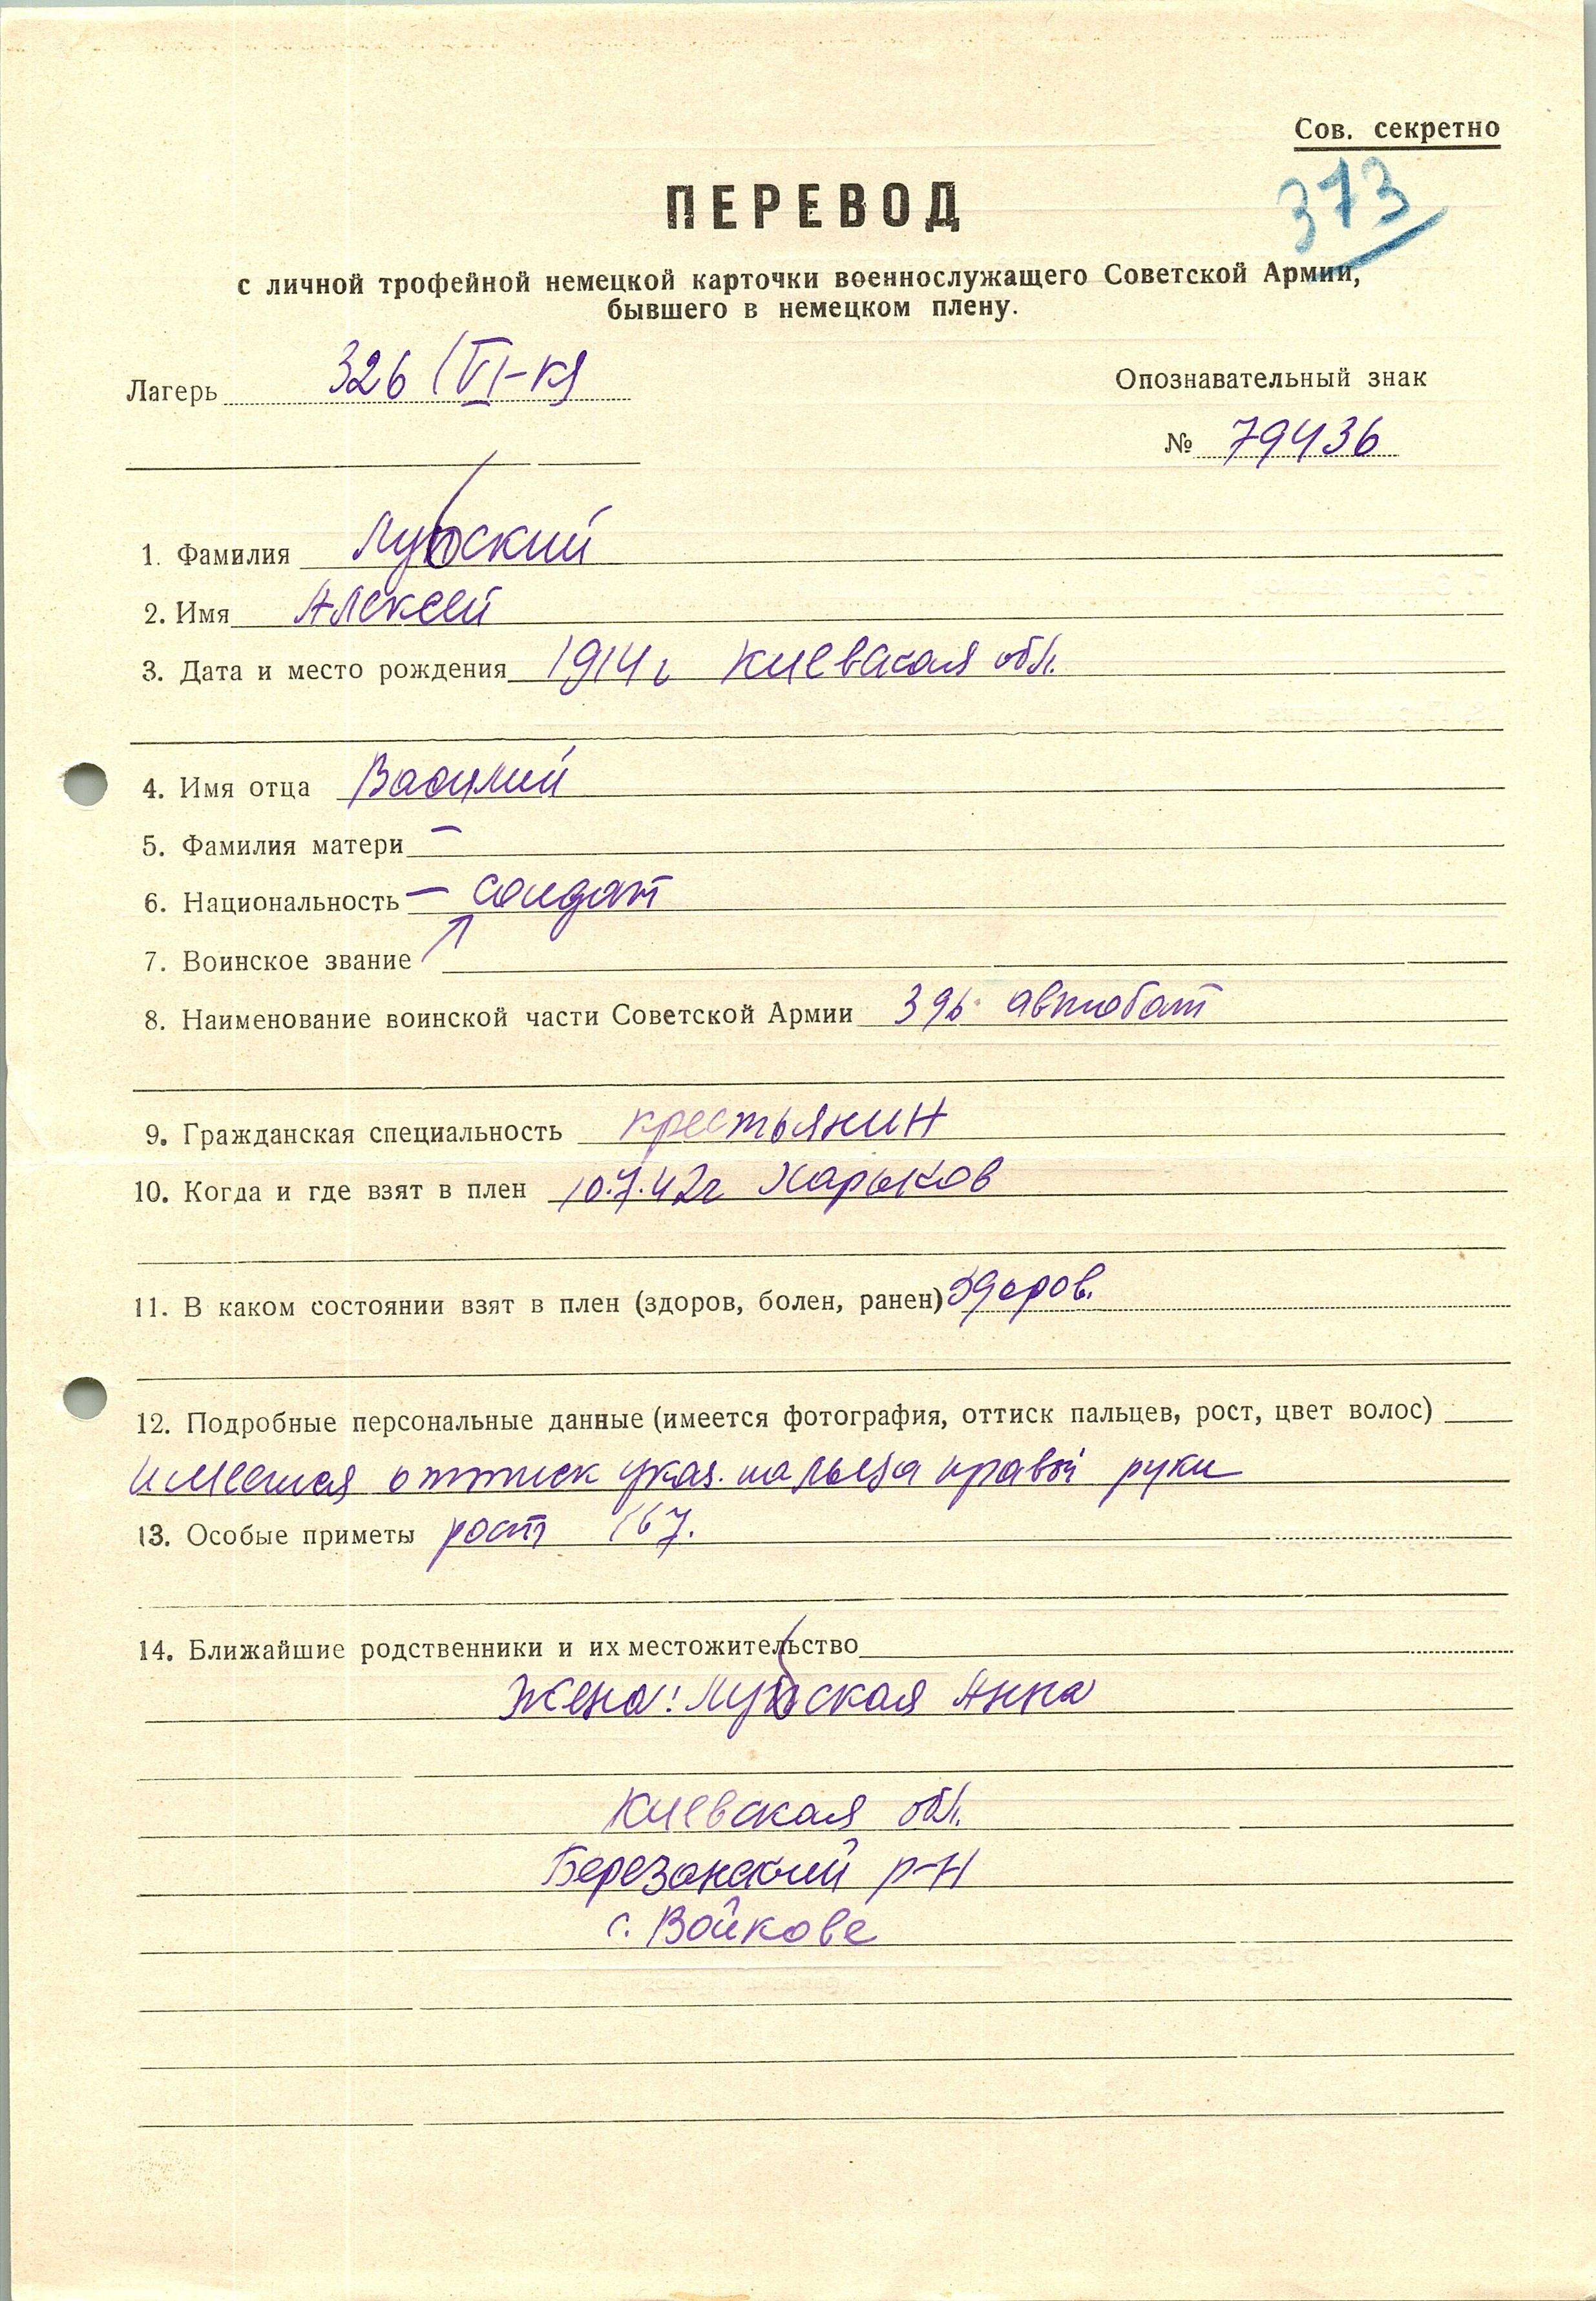 Сов. секретно
373
ПЕРЕВОД
с личной трофейной немецкой карточки военнослужащего Советской Армии,
бывшего в немецком плену.
Лагерь 326 (VI-К)
Опознавательный знак
№ 79436
1. Фамилия Лубский
2. Имя Алексей
3. Дата и место рождения 1914 г Киевская обл.
4. Имя отца Василий
5. Фамилия матери –
6. Национальность – солдат
7. Воинское звание
8. Наименование воинской части Советской Армии 396 автобат
9. Гражданская специальность крестьянин
10. Когда и где взят в плен 10.7.42г Харьков
11. В каком состоянии взят в плен (здоров, болен, ранен) здоров.
12. Подробные персональные данные (имеется фотография, оттиск пальцев, рост, цвет волос)
имеется оттиск указ. пальца правой руки
13. Особые приметы рост 167.
14. Ближайшие родственники и их местожительство
Жена: Лубская Анна
Киевская обл.
Березанский р-н
с. Войкове